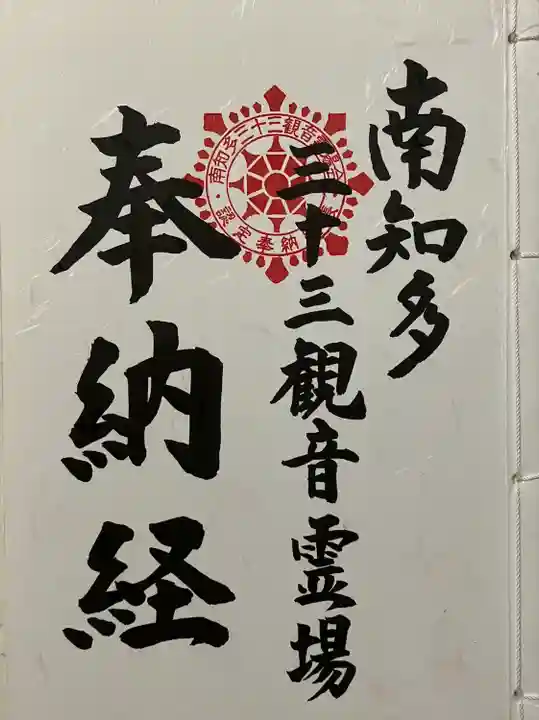 南知多
三十三観音霊場
奉納経
南知多三十三観音霊場
認定奉納